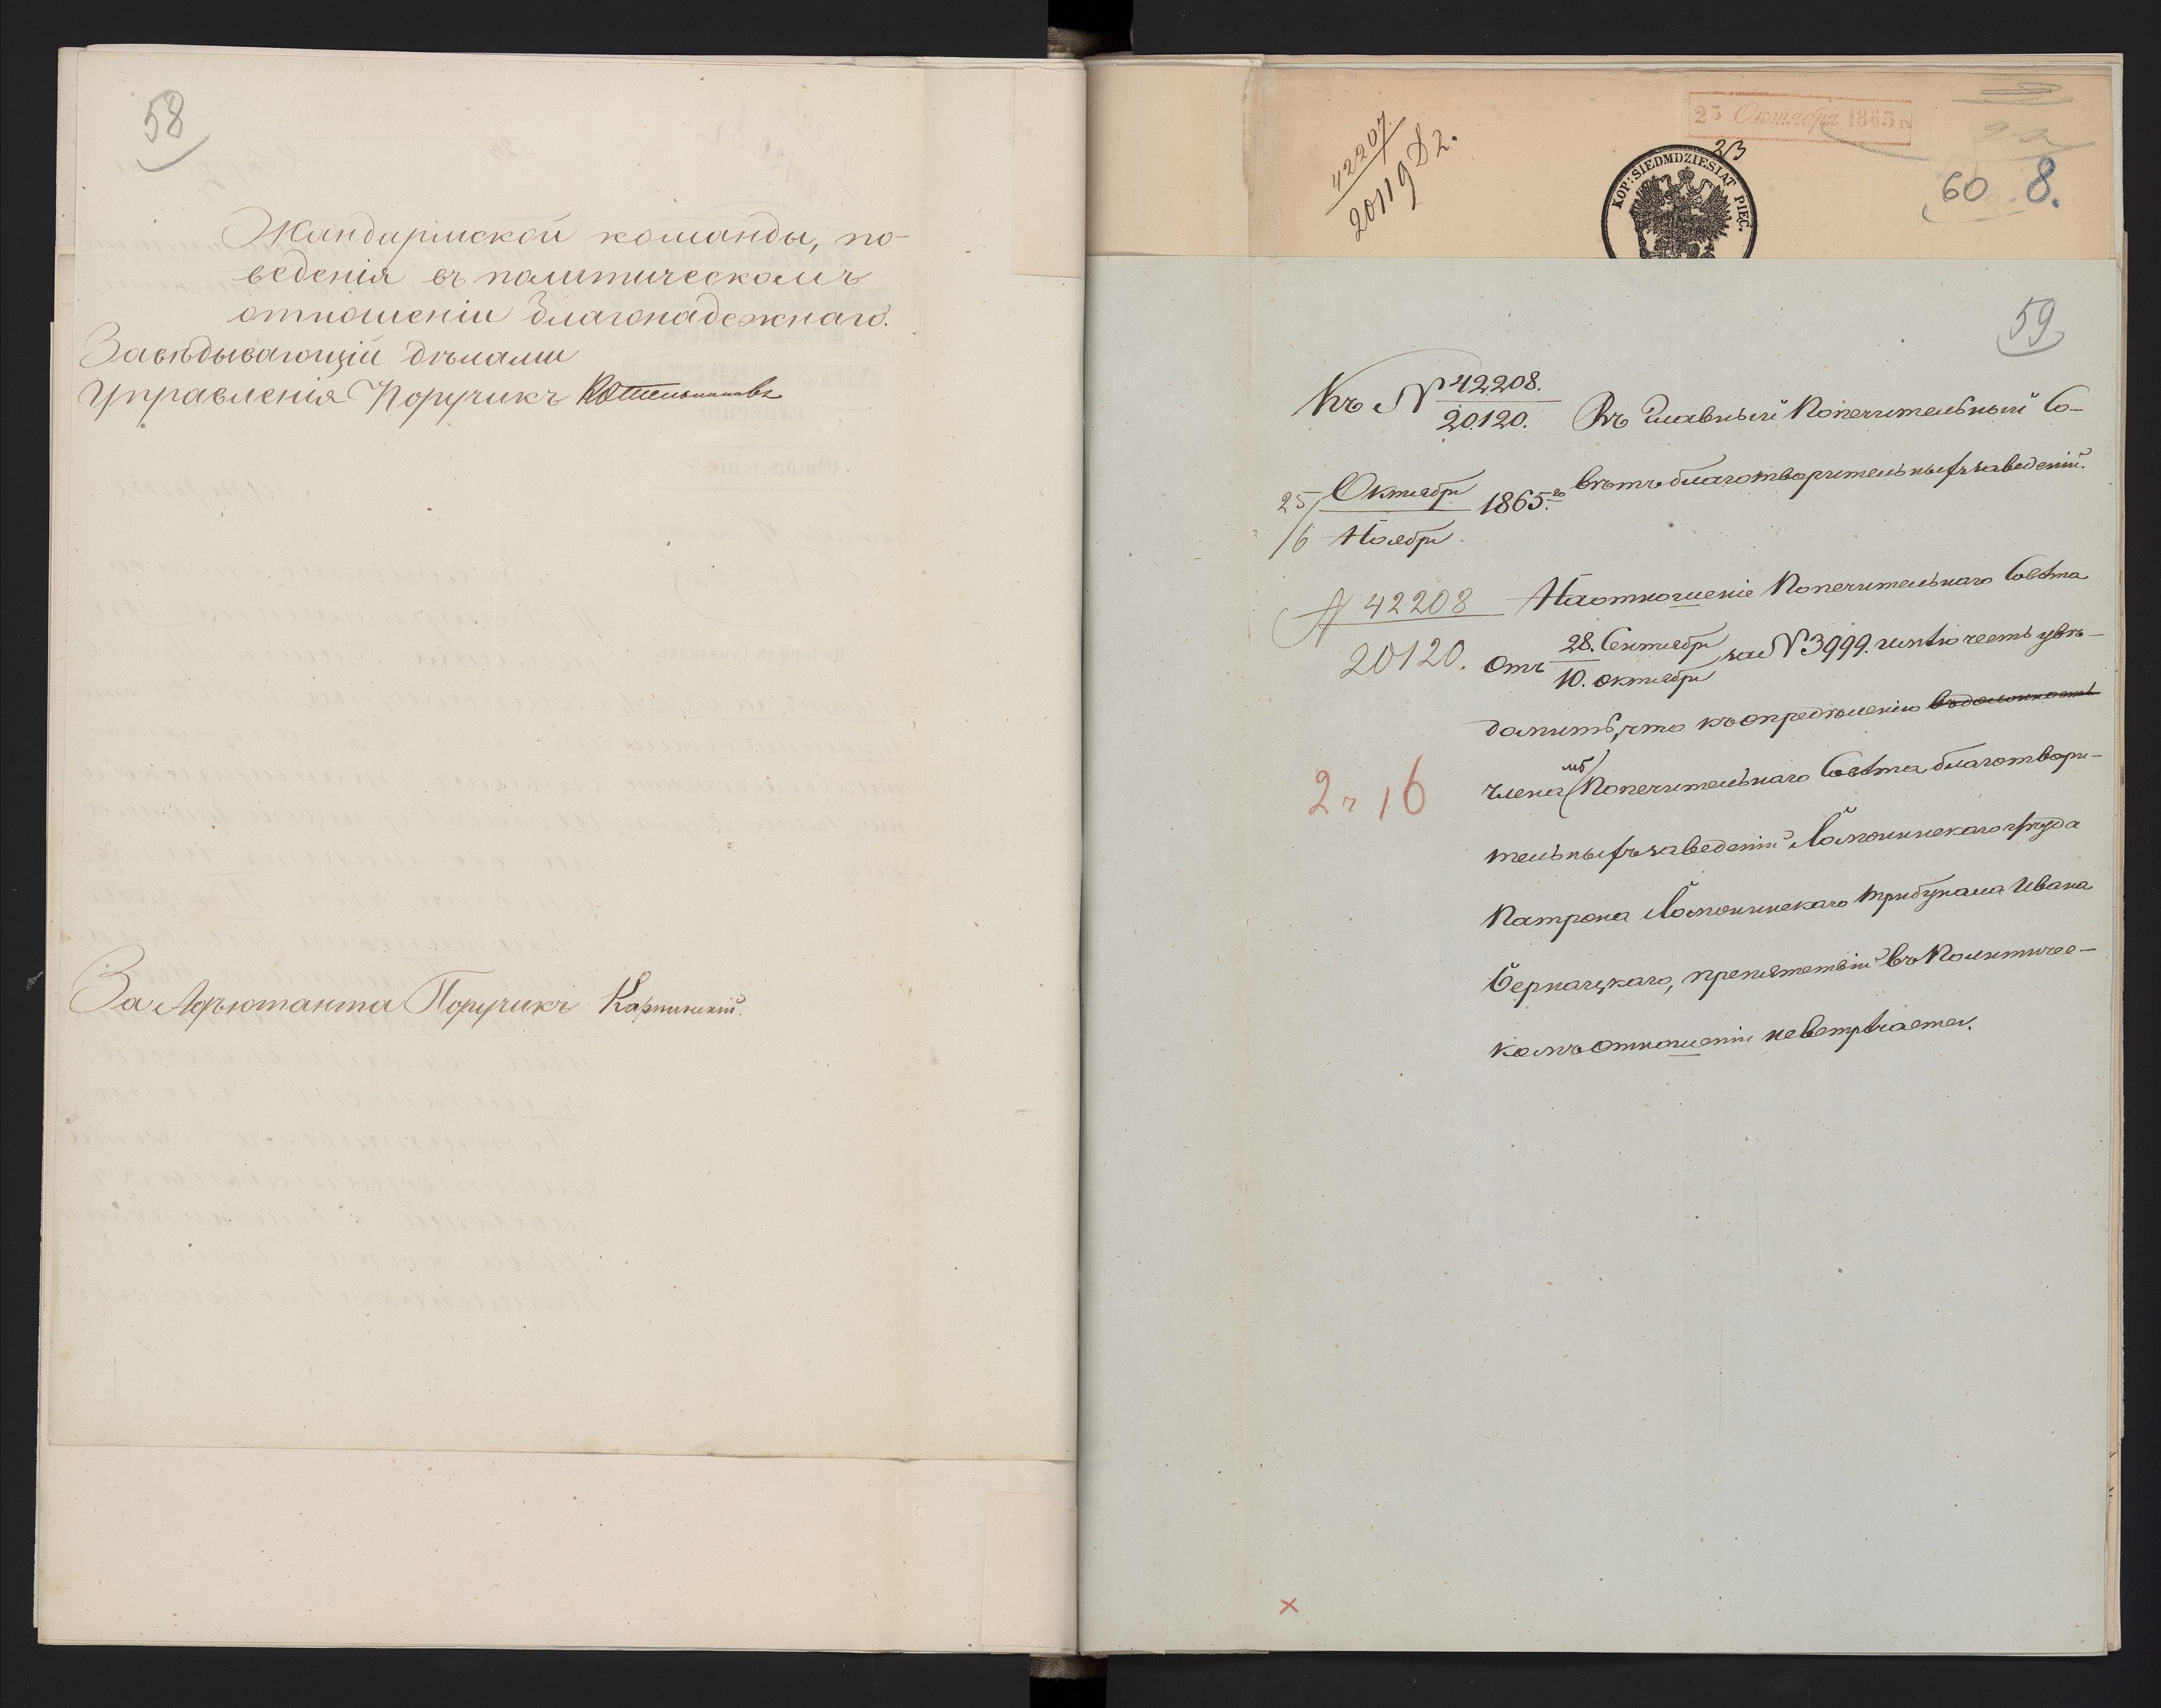 58
Жандармской команды, по-
веденія въ политическомъ
отношеніи благонадежнаго.
Завѣдывающій дѣлами
Управленія Поручикъ
За Адъютанта Поручикъ
25 Октября 1865 г.
42207
20119 82.
23
KOP: SIEDMDZIESIAT PIĘC.
60 8.
59
Къ N 42208.
20120.
Въ Главный Попечительный Со-
вѣтъ благотворительныхъ заведеній.
25 Октября
/6 Ноября
1865.го
N 42208
20120.
На отношеніе Попечительнаго Совѣта
отъ 28. Сентября
10. Октября
за N 3999. имѣю честь увѣ-
домить, что къ опредѣленію
члена Попечительнаго Совѣта благотвори-
тельныхъ заведеній Ломжинскаго уѣзда
Патрона Ломжинскаго Трибунала Ивана
препятствій въ Политичес-
комъ отношеніи не встрѣчается.
2 ч 16